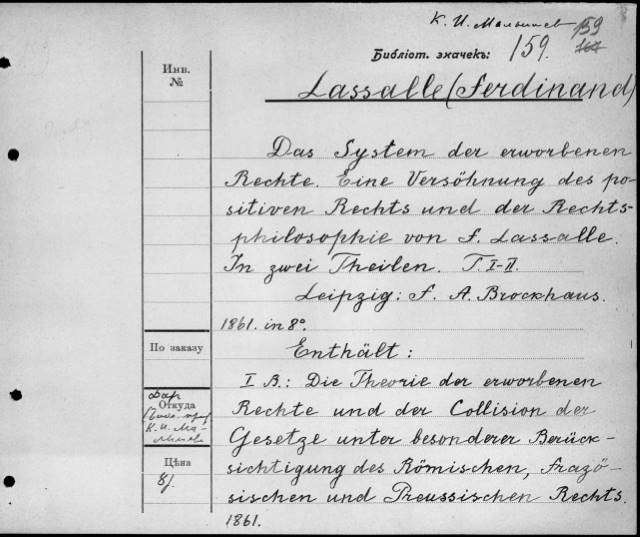 К. И. Малышев 159
Библіот. значекъ: 159. 167
Инв.
№
Lassalle (Ferdinand)
Das System der erworbenen
Rechte. Eine Versöhnung des po-
sitiven Rechts und der Rechts-
philosophie von F. Lassalle.
In zwei Theilen. T. I-II.
Leipzig: F. A. Brockhaus.
1861. in 8°.
По заказу
Enthält:
I B.: Die Theorie der erworbenen
Откуда
Rechte und der Collision der
К. И. Ма-
лышев
Gesetze unter besonderer Berück-
Цѣна
sichtigung des Römischen, Frazö-
sischen und Preussischen Rechts.
1861.